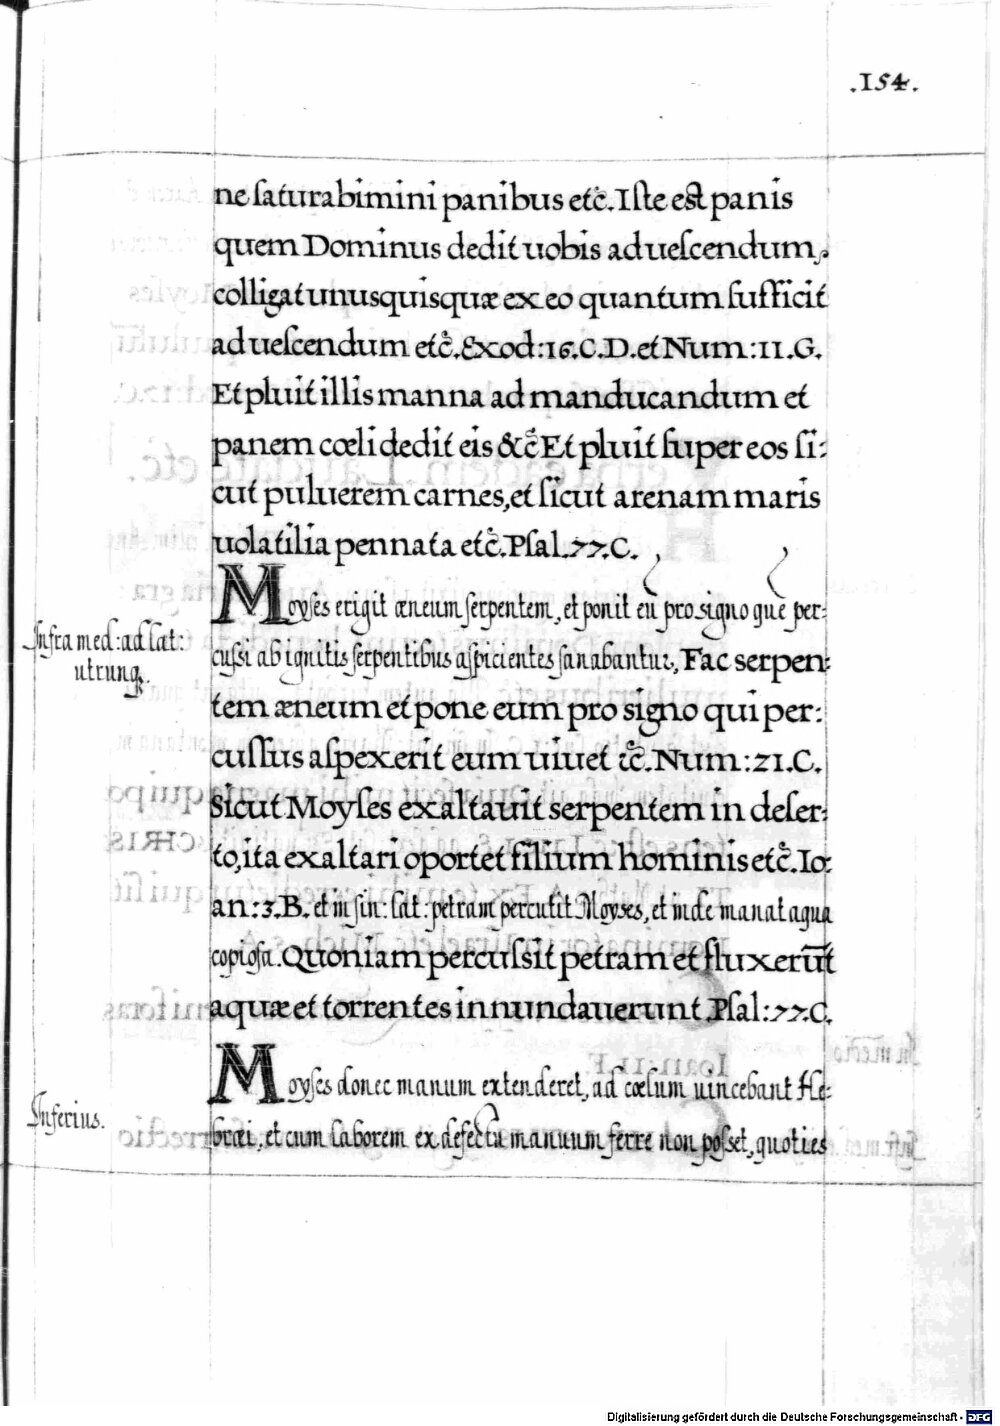 .154.
ne saturabimini panibus etc̃. Iste est panis
quem Dominus dedit uobis ad uescendum,
colligat unusquisquæ ex eo quantum sufficit
ad uescendum etc̃. Exod: 16. C. D. et Num: 11. G.
Et pluit illis manna ad manducandum et
panem cœli dedit eis &c̃ Et pluit super eos si:
cut puluerem carnes, et sicut arenam maris
uolatilia pennata etc̃. Psal. 77. C.
Moyses erigit æneum serpentem, et ponit eũ pro signo que per:
Infra med: ad lat:
utrunq.
cussi ab ignitis serpentibus aspicientes sanabantur, Fac serpen:
tem æneum et pone eum pro signo qui per:
cussus aspexerit eum uiuet &c̃. Num: 21. C.
Sicut Moyses exaltauit serpentem in deser:
to, ita exaltari oportet filium hominis etc̃. Io:
an: 3. B. et in sin: lat: petram percutit Moyses, et inde manat aqua
copiosa. Quoniam percussit petram et fluxerũt
aquæ et torrentes innundauerunt Psal: 77. C.
Moyses donec manum extenderet, ad cœlum uincebant He:
Inferius.
bræi, et cum laborem ex defectu manuum ferre non posset, quoties
Digitalisierung gefördert durch die Deutsche Forschungsgemeinschaft - DFG